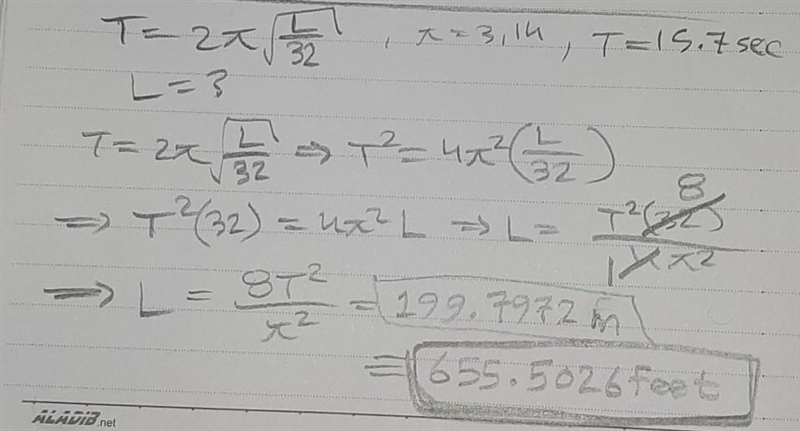 T = 2π√(L/32) , π = 3,14 , T = 15.7 sec
L = ?
T = 2π√(L/32) ⇒ T² = 4π²(L/32)
⇒ T²(32) = 4π² L → L = T²(32) 8 / 1 4 π²
⇒ L = 8T²/π² = 199.7972 m
= 655.5026 feet
ALADIB.net